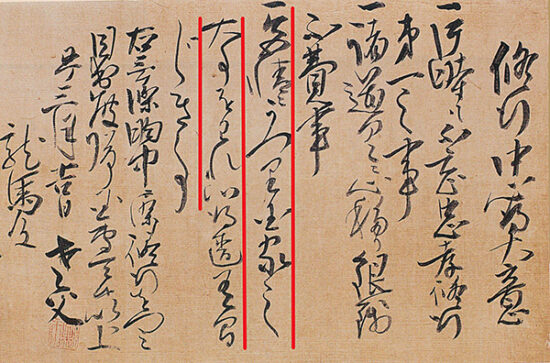 修行中心得大意
一片時も不忘忠孝修行
第一之事
一諸道具ニ心移り銀銭
不費事
一色情ニうつり国家之
大事をわすれ心得違有間
じき事
右三ヶ条胸中ニ染修行をつミ
目出度帰国専一ニ候以上
丑ノ三月吉日 老父
龍馬殿